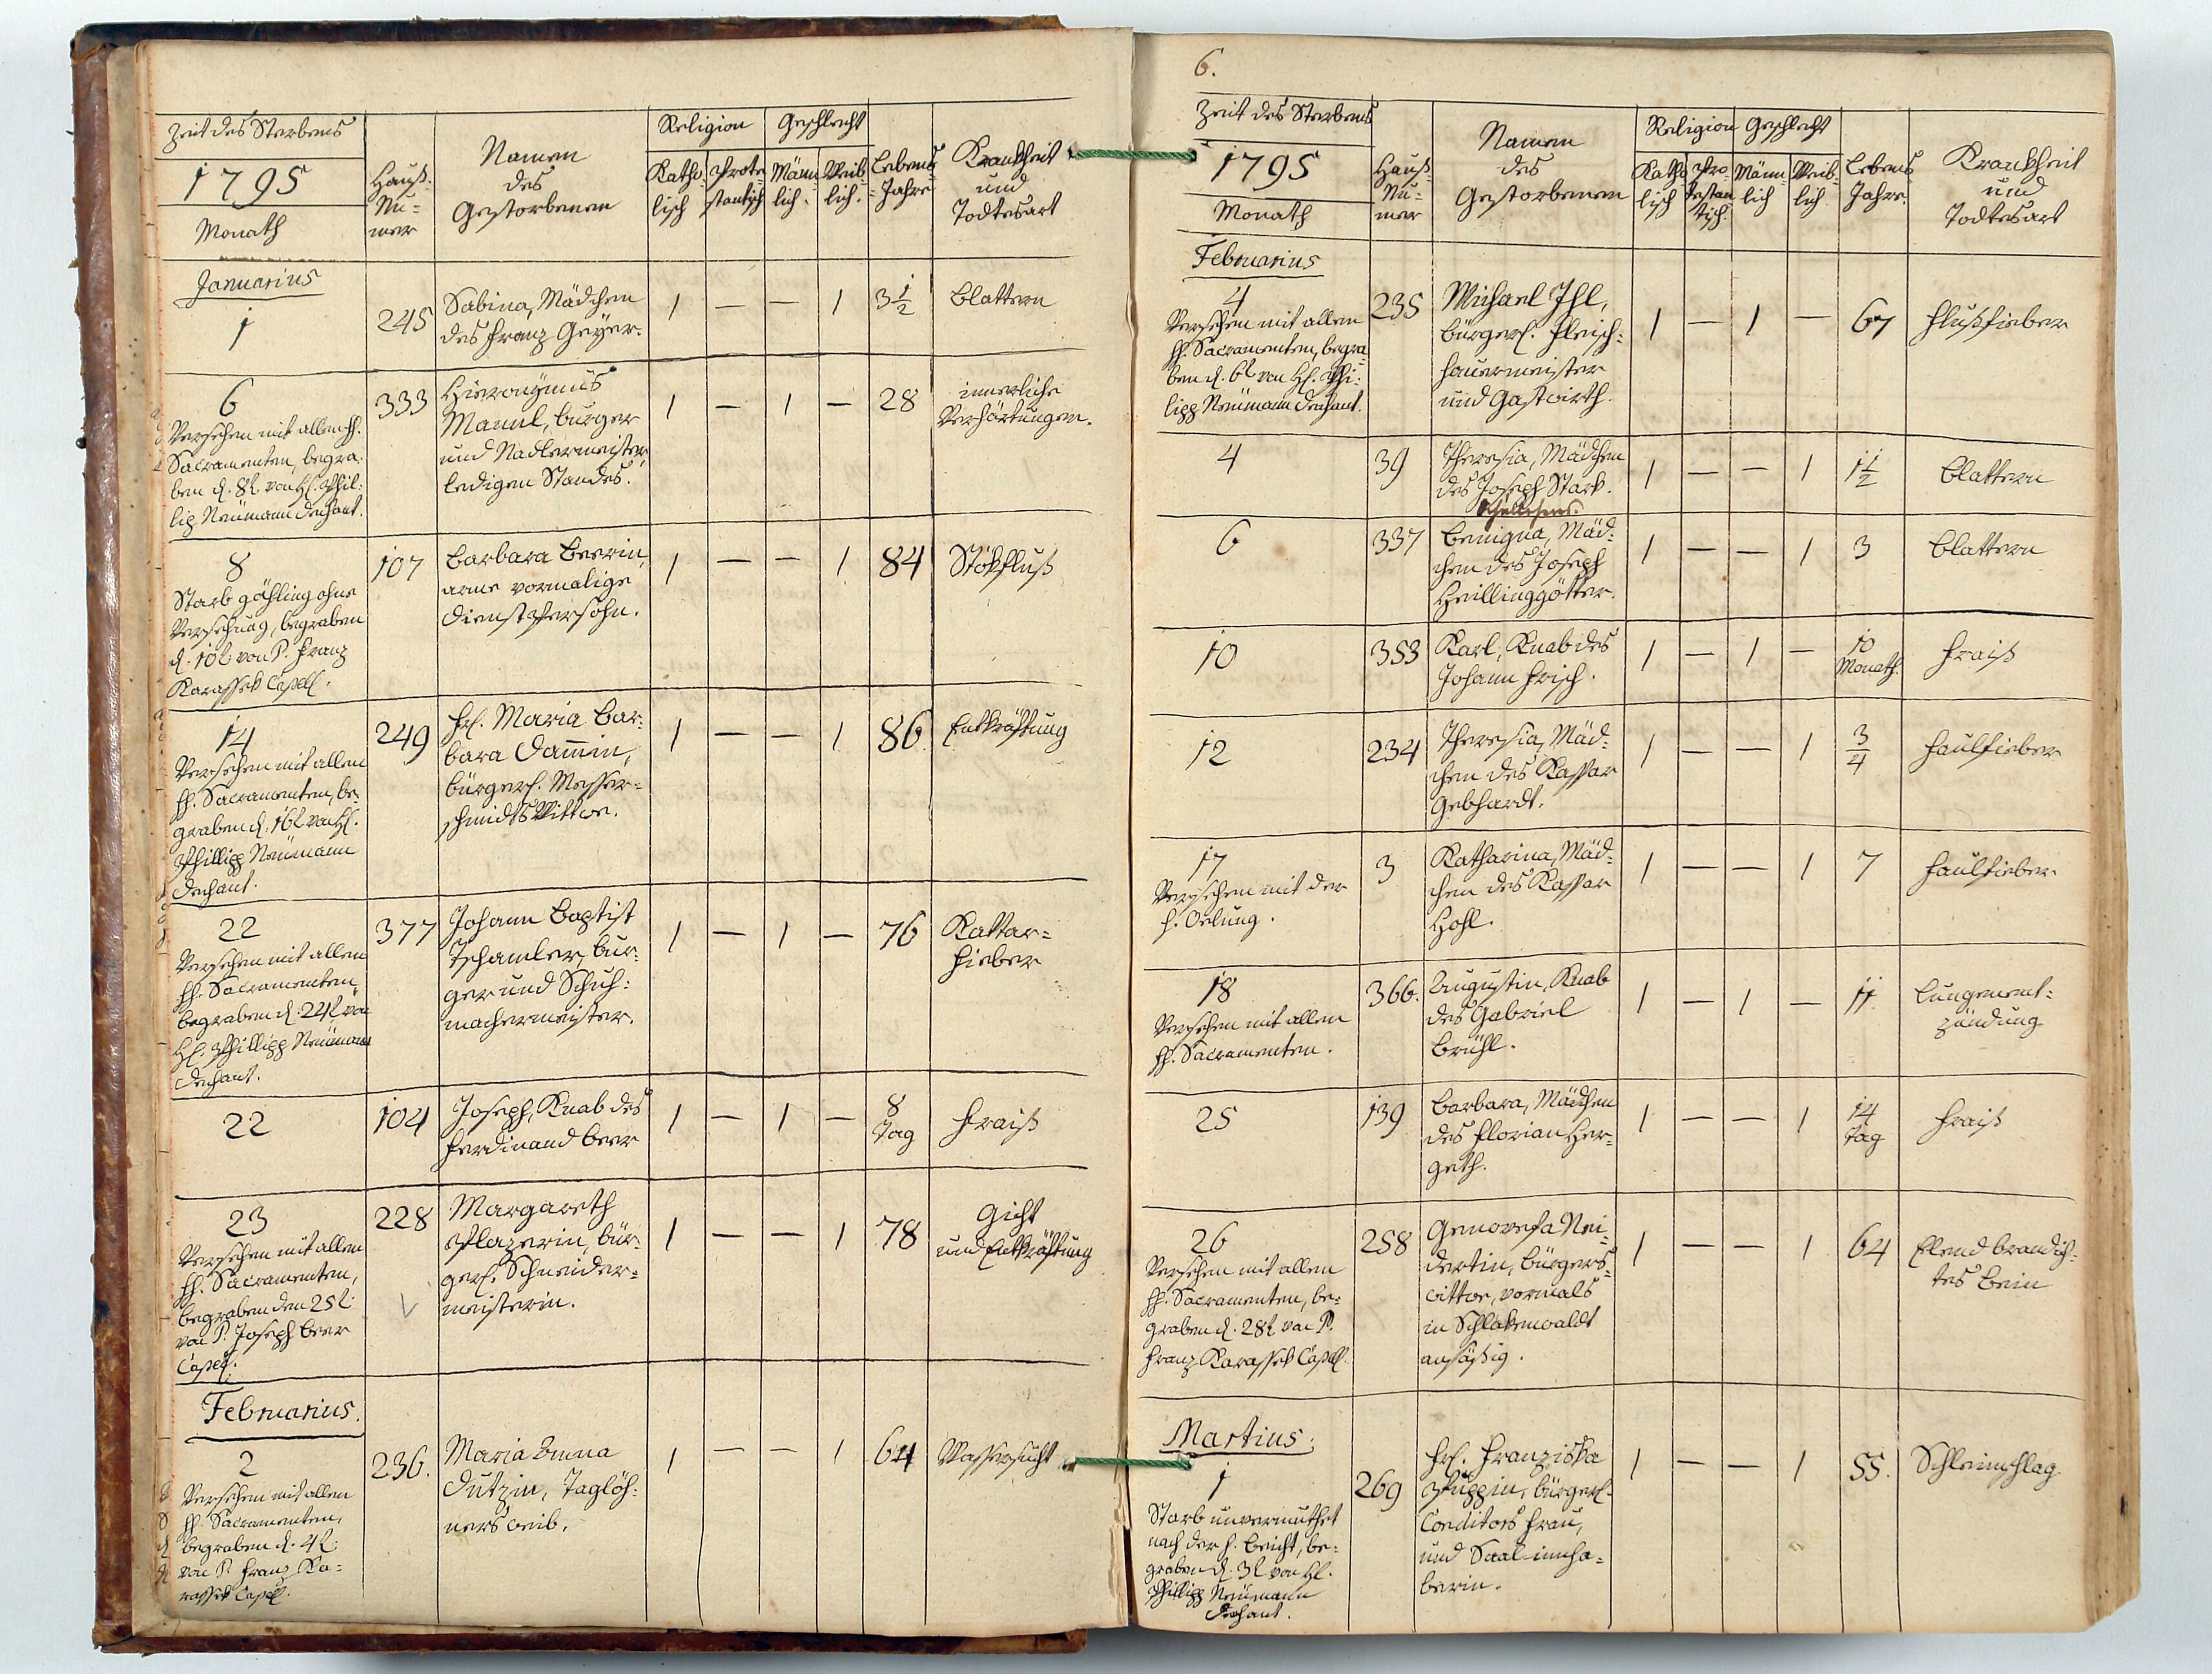 Zeit des Sterbens
1795
Monath
Hauß-
Nu-
mer
Namen
des
Gestorbenen
Religion
Katho-
lisch
Prote-
stantisch
Geschlecht
Männ-
lich.
Weib-
lich.
Lebens-
Jahre
Krankheit
und
Todtesart
Januarius
1
245
Sabina, Mädchen
des Franz Geÿer.
1 — — 1
3 1/2
Blattern
6
Versehen mit allen hh.
Sacramenten, begra-
ben d. 8t. von H. Phil-
lip Neümann Dechant.
333
Hieronÿmus
Mannl, burger
und Nadlermeister,
ledigen Standes.
1 — 1 —
28
innerliche
Verhärtungen.
8
Starb gähling ohne
Versehung, begraben
d. 10t. von P. Franz
Karassek Capell.
107
Barbara Beerin,
arme vormalige
Dienstpersohn.
1 — — 1
84
Stökfluß
14
Versehen mit allen
hh. Sacramenten, be-
graben d. 16t von H.
Phillipp Neümann
Dechant.
249
Fr. Maria Bar-
bara Dam̄in,
bürgerl. Messer-
schmidts Wittwe.
1 — — 1
86
Entkräftung
22
Versehen mit allen
hh. Sacramenten,
begraben d. 24t. von
H. Phillipp Neümann
Dechant.
377
Johann Baptist
Tschamler, bur-
ger und Schuh-
machermeister.
1 — 1 —
76
Kattar-
fieber
22
104
Joseph, Knab des
Ferdinand Beer
1 — 1 —
8
Tag
Fraiß
23
Versehen mit allen
hh. Sacramenten,
begraben den 25t.
von P. Joseph Beer
Capell.
228
Margareth
Plazerin, bür-
gerl. Schneider-
meisterin.
1 — — 1
78
Gicht
und Entkräftung
Februarius.
2
Versehen mit allen
hh. Sacramenten,
begraben d. 4t.
von P. Franz Ka-
rassek Capell.
236.
Maria Anna
Dutzin, Taglöh-
ners weib.
1 — — 1
64
Wassersucht
6.
Zeit des Sterbens
1795
Monath
Hauß-
Nu-
mer
Namen
des
Gestorbenen
Religion
Katho
lisch
Pro-
testan
tisch.
Geschlecht
Männ-
lich
Weib-
lich
Lebens
Jahre.
Krankheit
und
Todtesart
Februarius
4
Versehen mit allen
hh. Sacramenten, begra-
ben d. 6t von H. Phi-
lipp Neümann Dechant.
235
Michael Ihl,
bürgerl. Fleisch-
hauermeister
und Gastwirth.
1 — 1 —
67
Flußfieber
4
39
Theresia, Mädchen
des Joseph Stark.
1 — — 1
1 1/2
Blattern
6
337
Benigna, Mäd-
chen des Joseph
Heillinggötter.
1 — — 1
3
Blattern
10
353
Karl, Knab des
Johann Frisch.
1 — 1 —
10
Monath.
Fraiß
12
234
Theresia, Mäd-
chen des Kaspar
Gebhardt.
1 — — 1
3/4
Faulfieber
17
Versehen mit der
h. Oelung.
3
Katharina, Mäd-
chen des Kaspar
Hohl.
1 — — 1
7
Faulfieber
18
Versehen mit allen
hh. Sacramenten.
366.
Augustin, Knab
des Gabriel
Brühl.
1 — 1 —
11
Lungenent-
zündung
25
139
Barbara, Mädchen
des Florian Her-
geth.
1 — — 1
14
Tag
Fraiß
26
Versehen mit allen
hh. Sacramenten, be-
graben d. 28t von P.
Franz Karassek Capell.
258
Genovefa Nei-
dertin, bürgers-
wittwe, vormals
in Schlakenwaldt
ansäßig.
1 — — 1
64
Elend brandich-
tes Bein
Martius.
1
Starb unvermuthet
nach der h. Beicht, be-
graben d. 3t von H.
Phillipp Neümann
Dechant.
269
Fr. Franziska
Puppin, bürgerl.
Conditors frau,
und Saal-innha-
berin.
1 — — 1
55.
Schleimschlag.